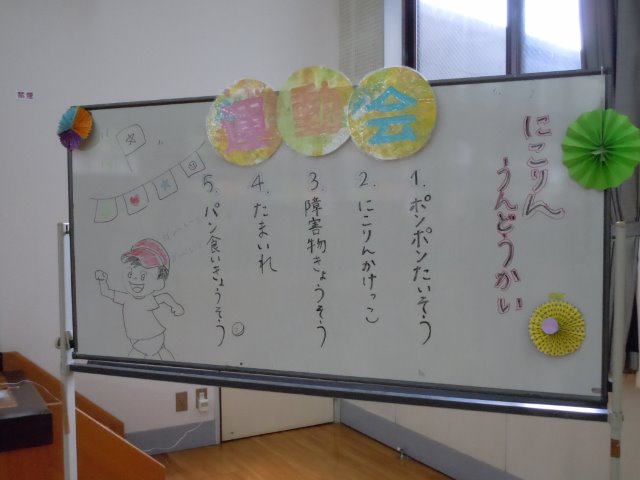 運動会
にこりん
うんどうかい
1. ポンポンたいそう
2. にこりんかけっこ
3. 障害物きょうそう
4. たまいれ
5. パン食いきょうそう